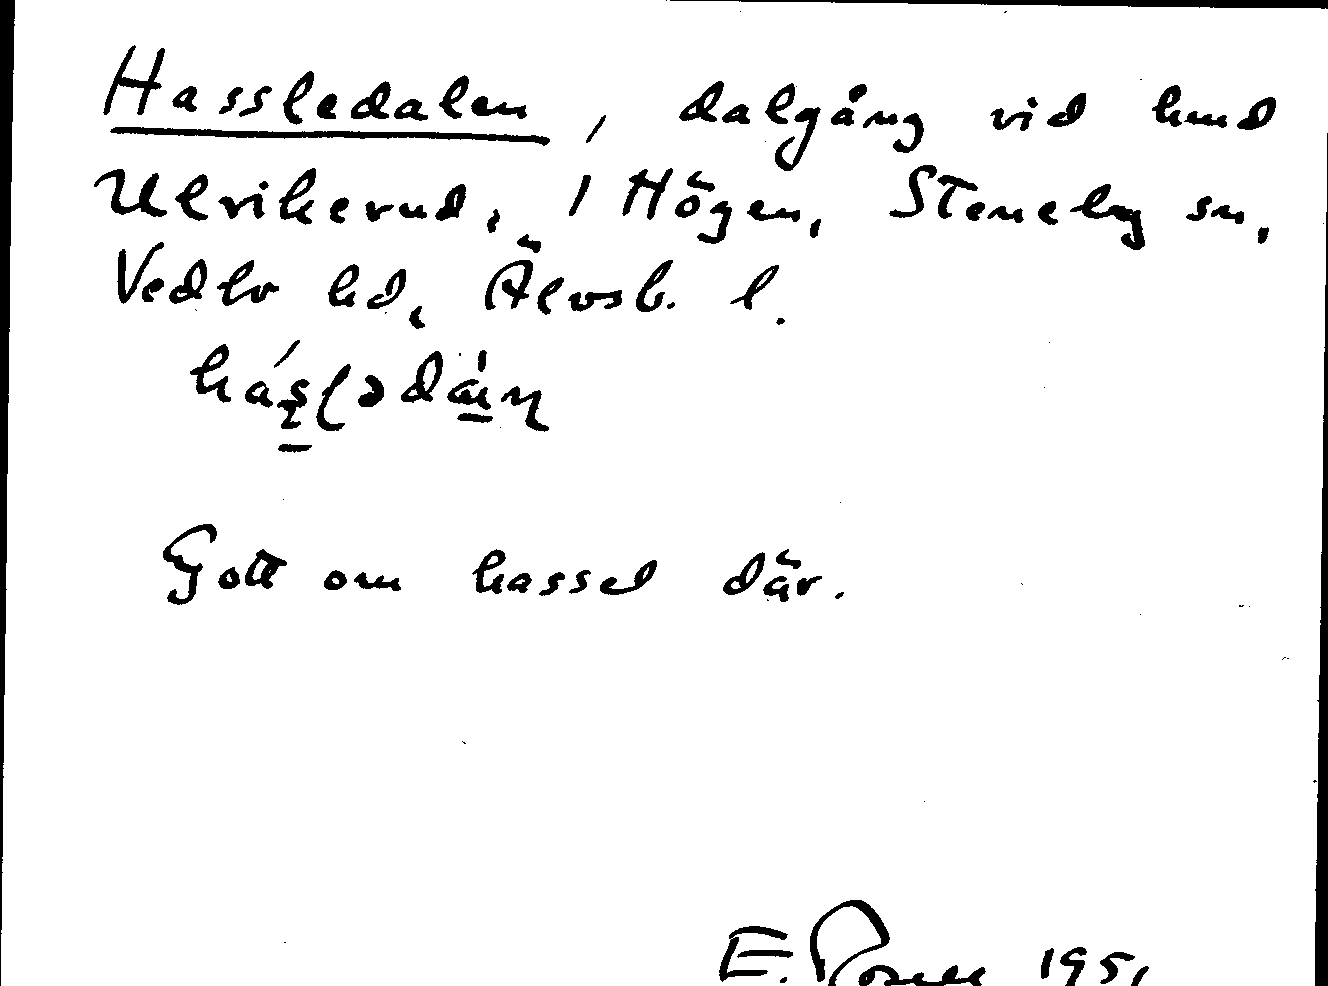 Hassledalen, dalgång vid hmd
Ulrikerud, 1 Högen, Steneby sn,
Vedbo hd, Älvsb. l.
Gott om hassel där.
E. 1951